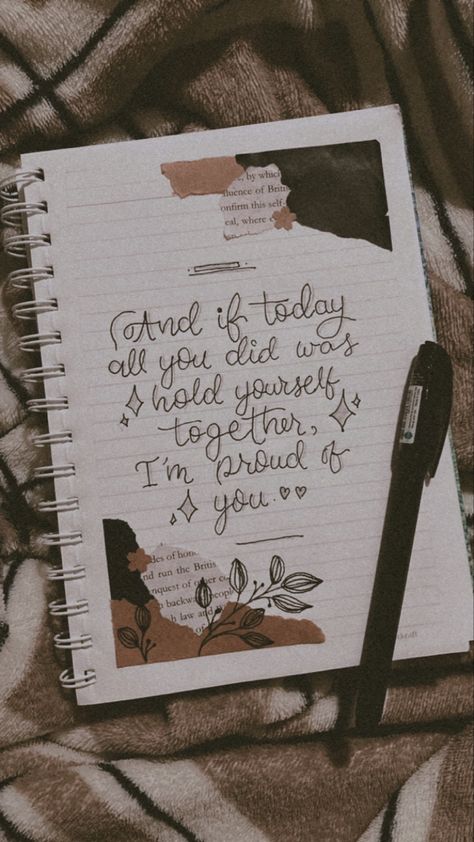 by which
fluence of Brit
onfirm this self-
eal, where
And if today
all you did was
hold yourself
together,
I'm proud of
you.
des of hono
and run the Britis
nquest of other co
backward people
h law and